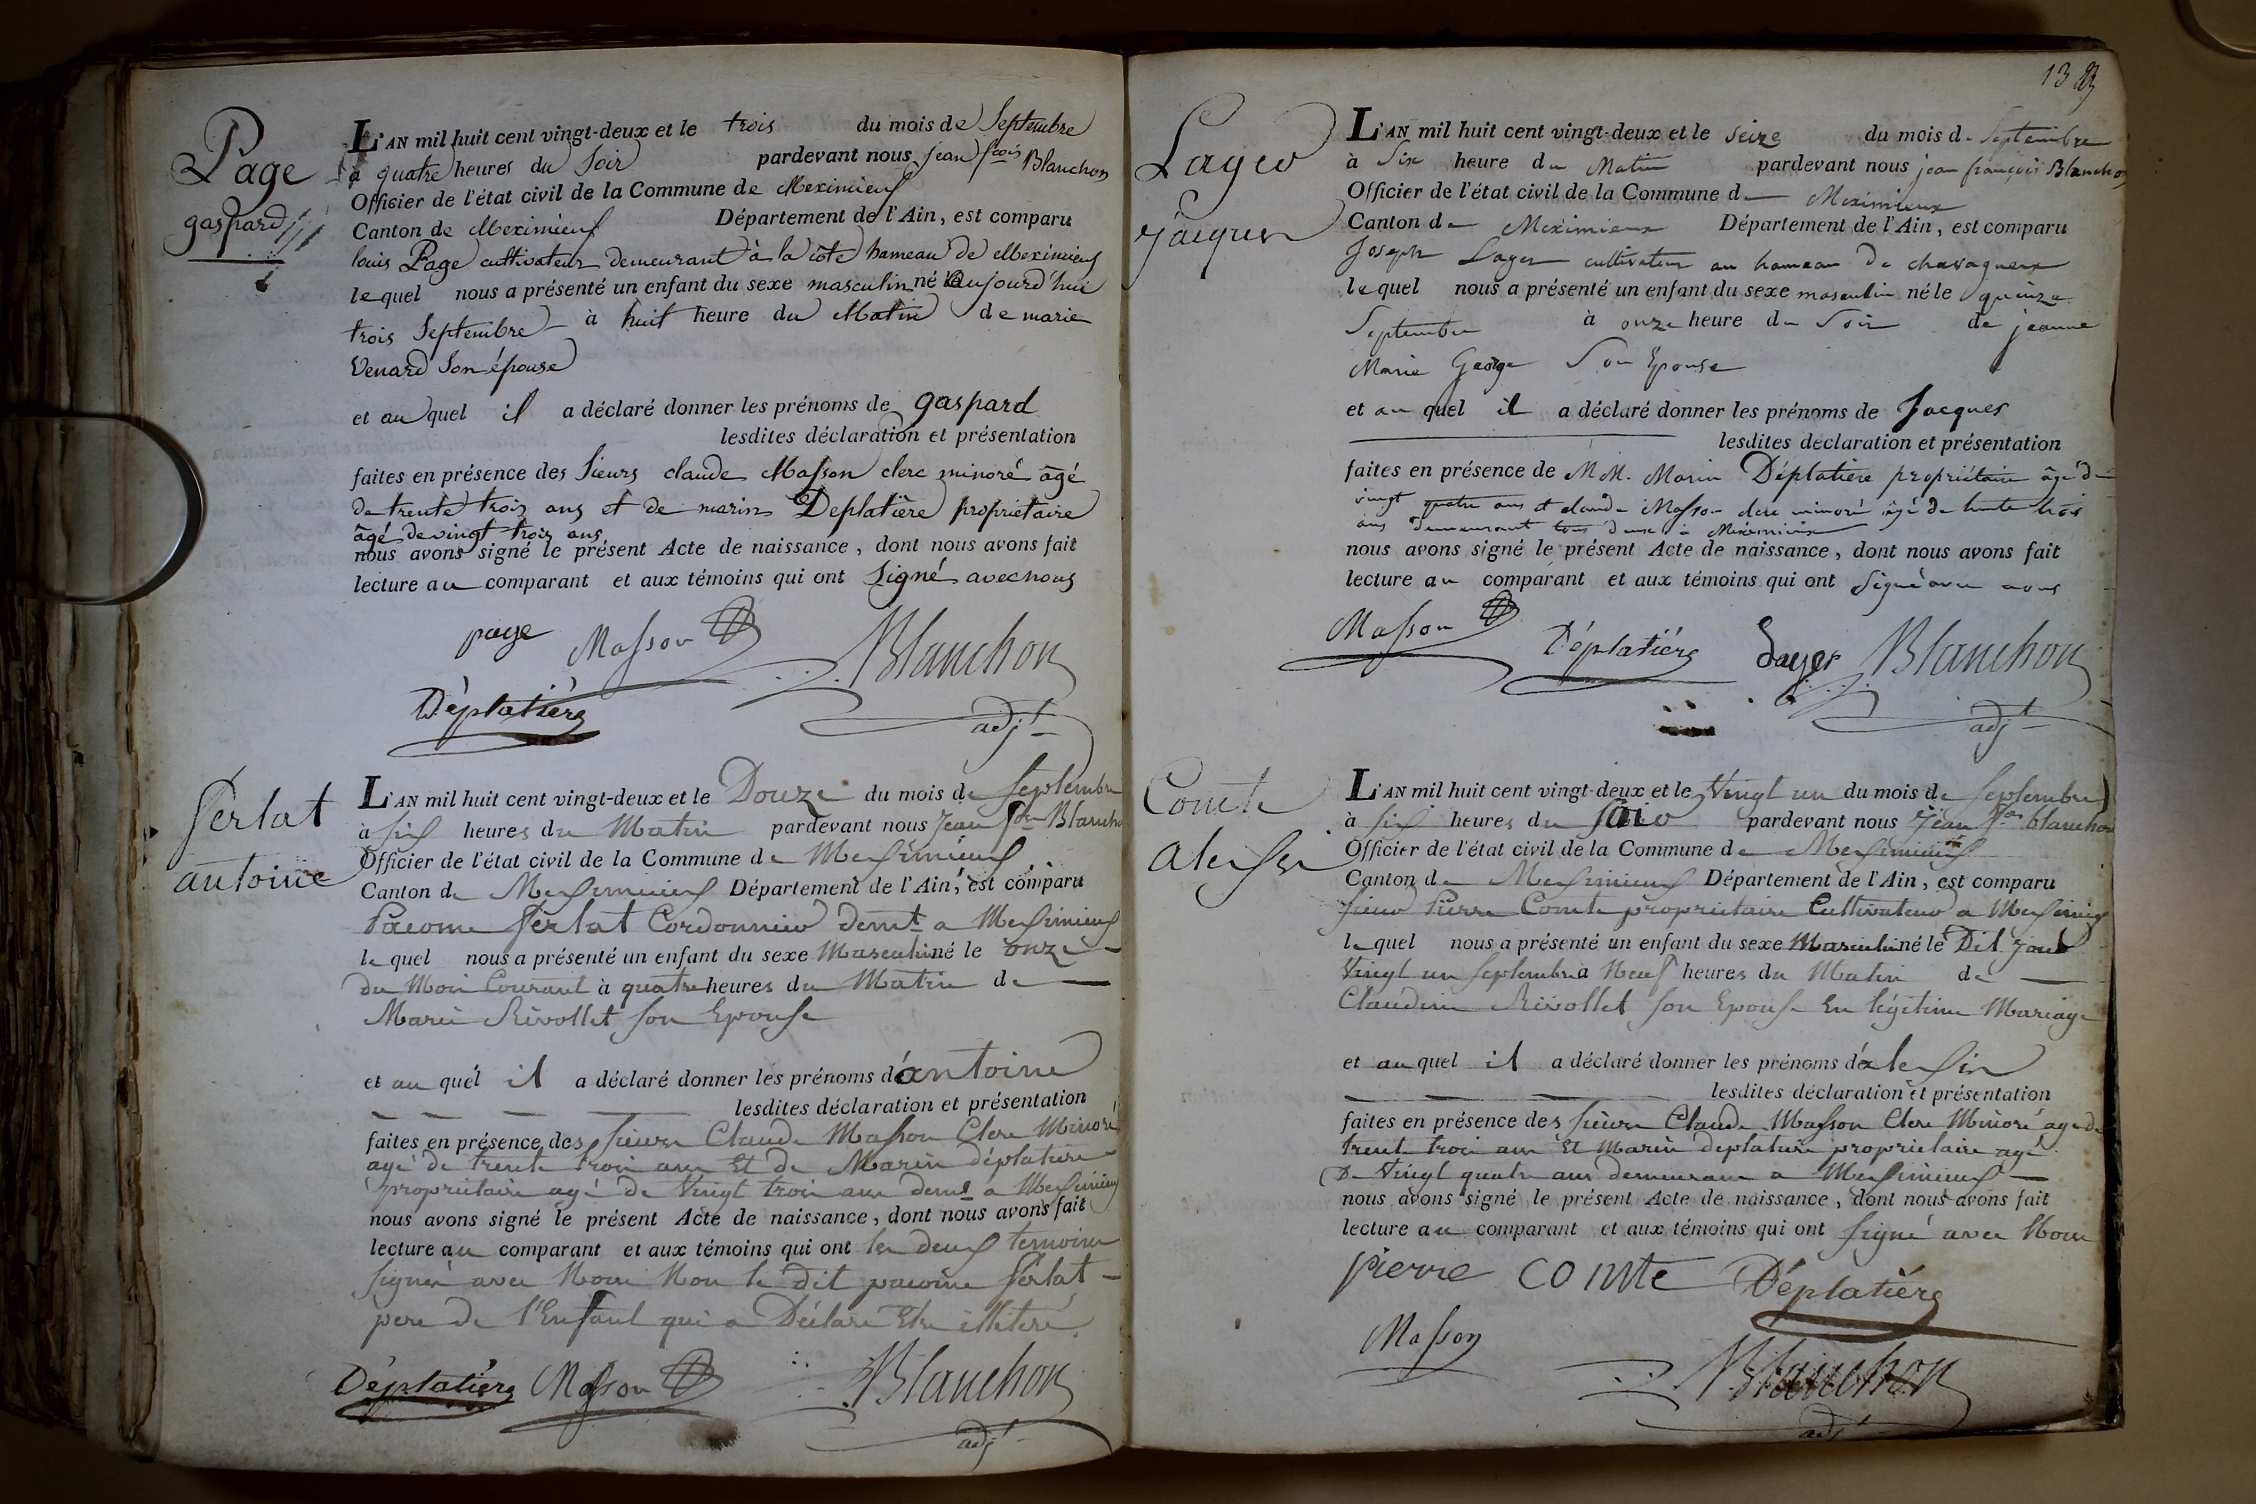 Page
gaspard
L'AN mil huit cent vingt-deux et le trois du mois de Septembre
à quatre heures du soir pardevant nous jean fcois Blanchon
Officier de l'état civil de la Commune de Meximieux
Canton de Meximieux Département de l'Ain, est comparu
louis Page cultivateur demeurant à la côte hameau de Meximieux
lequel nous a présenté un enfant du sexe masculin né aujourd'hui
trois Septembre à huit heure du Matin de marie
Venard son épouse
et au quel il a déclaré donner les prénoms de gaspard
lesdites déclaration et présentation
faites en présence des sieurs claude Masson clerc minoré âgé
de trente trois ans et de marin Deplatière propriétaire
âgé de vingt trois ans
nous avons signé le présent Acte de naissance, dont nous avons fait
lecture au comparant et aux témoins qui ont signé avec nous
page Masson Blanchon
Déplatière adjt
Perlat
antoine
L'AN mil huit cent vingt-deux et le Douze du mois de Septembre
à six heures du Matin pardevant nous Jean Blanchon
Officier de l'état civil de la Commune de Meximieux
Canton de Meximieux Département de l'Ain, est comparu
Pacome Perlat Cordonnier demt a Meximieux
lequel nous a présenté un enfant du sexe Masculin né le onze
du Mois Courant à quatre heures du Matin de
Marie Rivollet son Epouse
et au quel il a déclaré donner les prénoms d'antoine
lesdites déclaration et présentation
faites en présence des sieurs Claude Masson Clerc Minoré
agé de trente trois ans Et de Marin déplatiere
propriétaire agé de Vingt trois ans demt a Meximieux
nous avons signé le présent Acte de naissance, dont nous avons fait
lecture au comparant et aux témoins qui ont les deux temoins
signés avec Nous Non le dit pacome Perlat
pere de l'Enfant qui a Déclaré Etre illiteré.
Déplatière Masson Blanchon
adjt
13
Layer
jacques
L'AN mil huit cent vingt-deux et le seize du mois de Septembre
à Six heure du Matin pardevant nous jean françois Blanchon
Officier de l'état civil de la Commune de Meximieux
Canton de Meximieux Département de l'Ain, est comparu
Joseph Layer cultivateur au hameau de chavagneux
lequel nous a présenté un enfant du sexe masculin né le quinze
Septembre à onze heure du Soir de jeanne
Marie George Son Epouse
et au quel il a déclaré donner les prénoms de Jacques
lesdites déclaration et présentation
faites en présence de MM. Marin Déplatière propriétaire âgé de
vingt quatre ans et claude Masson clerc minoré âgé de trente trois
ans demeurant tous deux à Meximieux
nous avons signé le présent Acte de naissance, dont nous avons fait
lecture au comparant et aux témoins qui ont signé avec nous
Masson Déplatière Layer Blanchon
adjt
Comte
alexis
L'AN mil huit cent vingt-deux et le Vingt un du mois de Septembre
à six heures du soir pardevant nous Jean fois Blanchon
Officier de l'état civil de la Commune de Meximieux
Canton de Meximieux Département de l'Ain, est comparu
sieur Pierre Comte propriétaire Cultivateur a Meximieux
lequel nous a présenté un enfant du sexe Masculin né le Dit jour
Vingt un Septembre à Neuf heures du Matin de
Claudine Rivollet son Epouse En légitime Mariage
et au quel il a déclaré donner les prénoms d'alexis
lesdites déclaration et présentation
faites en présence des sieurs Claude Masson Clerc Minoré agé de
trente trois ans Et Marin deplatiere propriétaire agé
De Vingt quatre ans demeurans a Meximieux
nous avons signé le présent Acte de naissance, dont nous avons fait
lecture au comparant et aux témoins qui ont signé avec Nous
pierre comte Déplatière
Masson Blanchon
adjt